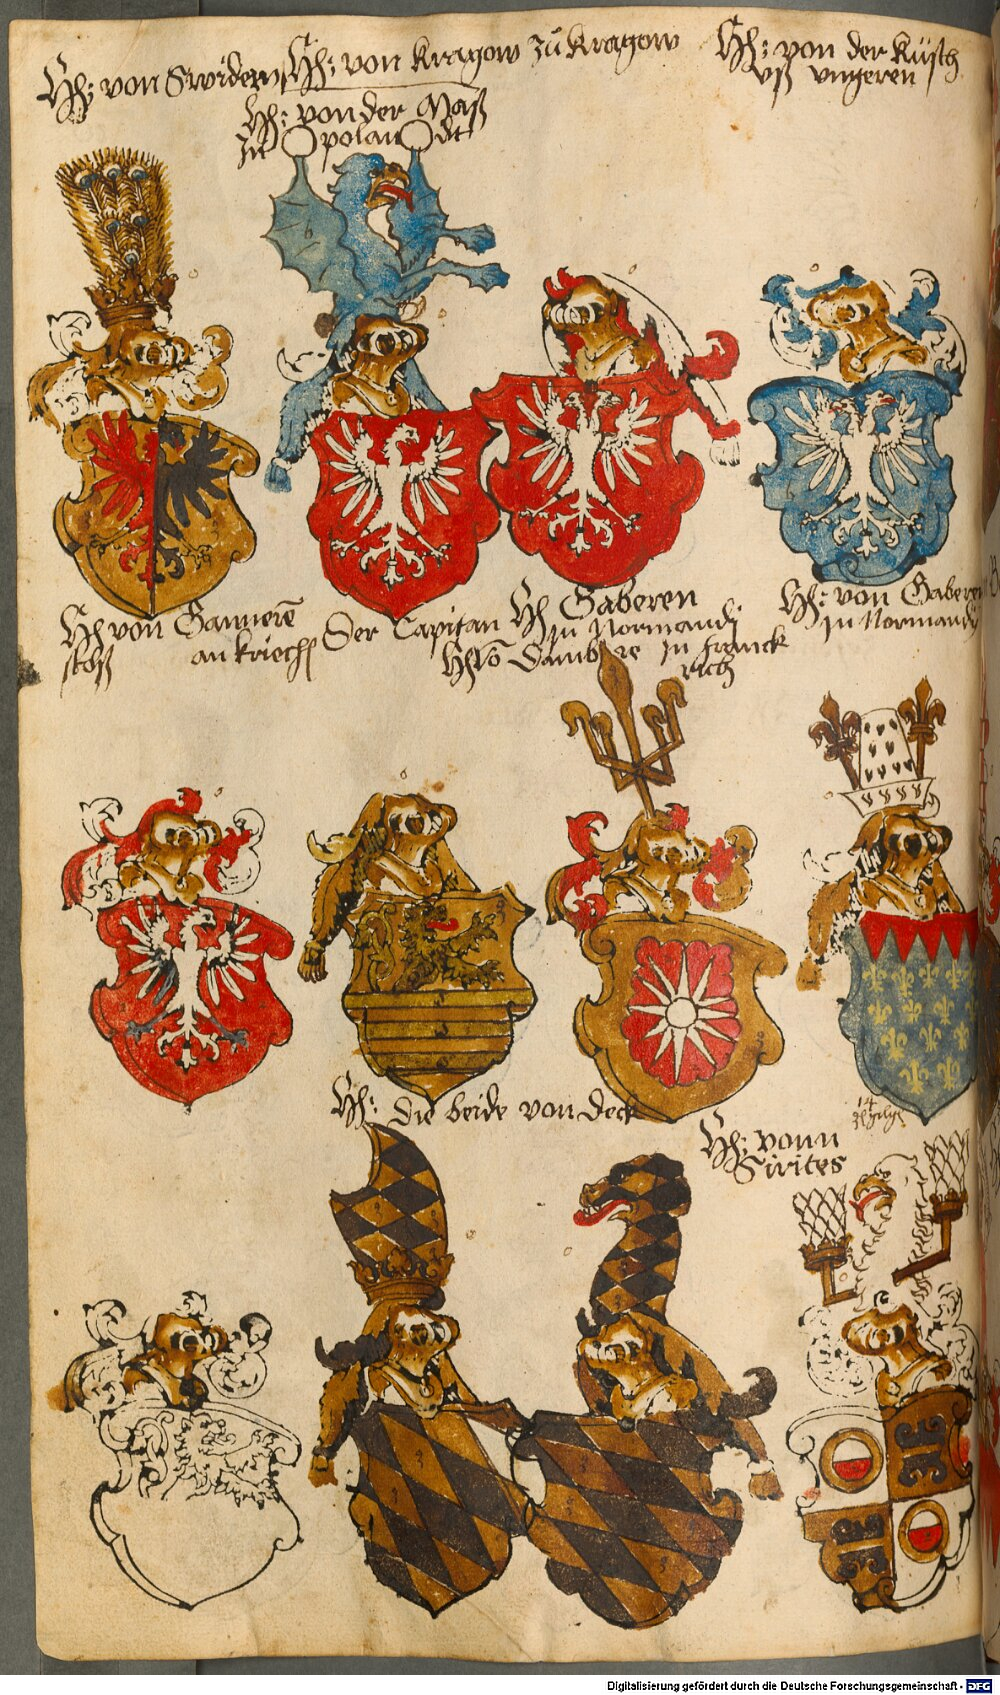 Hh: von Swidern
Hh: von Kragow zů Kragow
Hh: von der Küsch
vß vngeren
Hh: von der Maß
zu polan dt
Hh von Sannere
stoß
an kriech
Der Capitan
Hh Gaberen
in Normandj
Hh vo Dambre in franck
rich
Hh: von Gaberen
in Normandÿ
14
Hh: die beide von Deck
Hh: vonn
Sirites
Digitalisierung gefördert durch die Deutsche Forschungsgemeinschaft - DFG